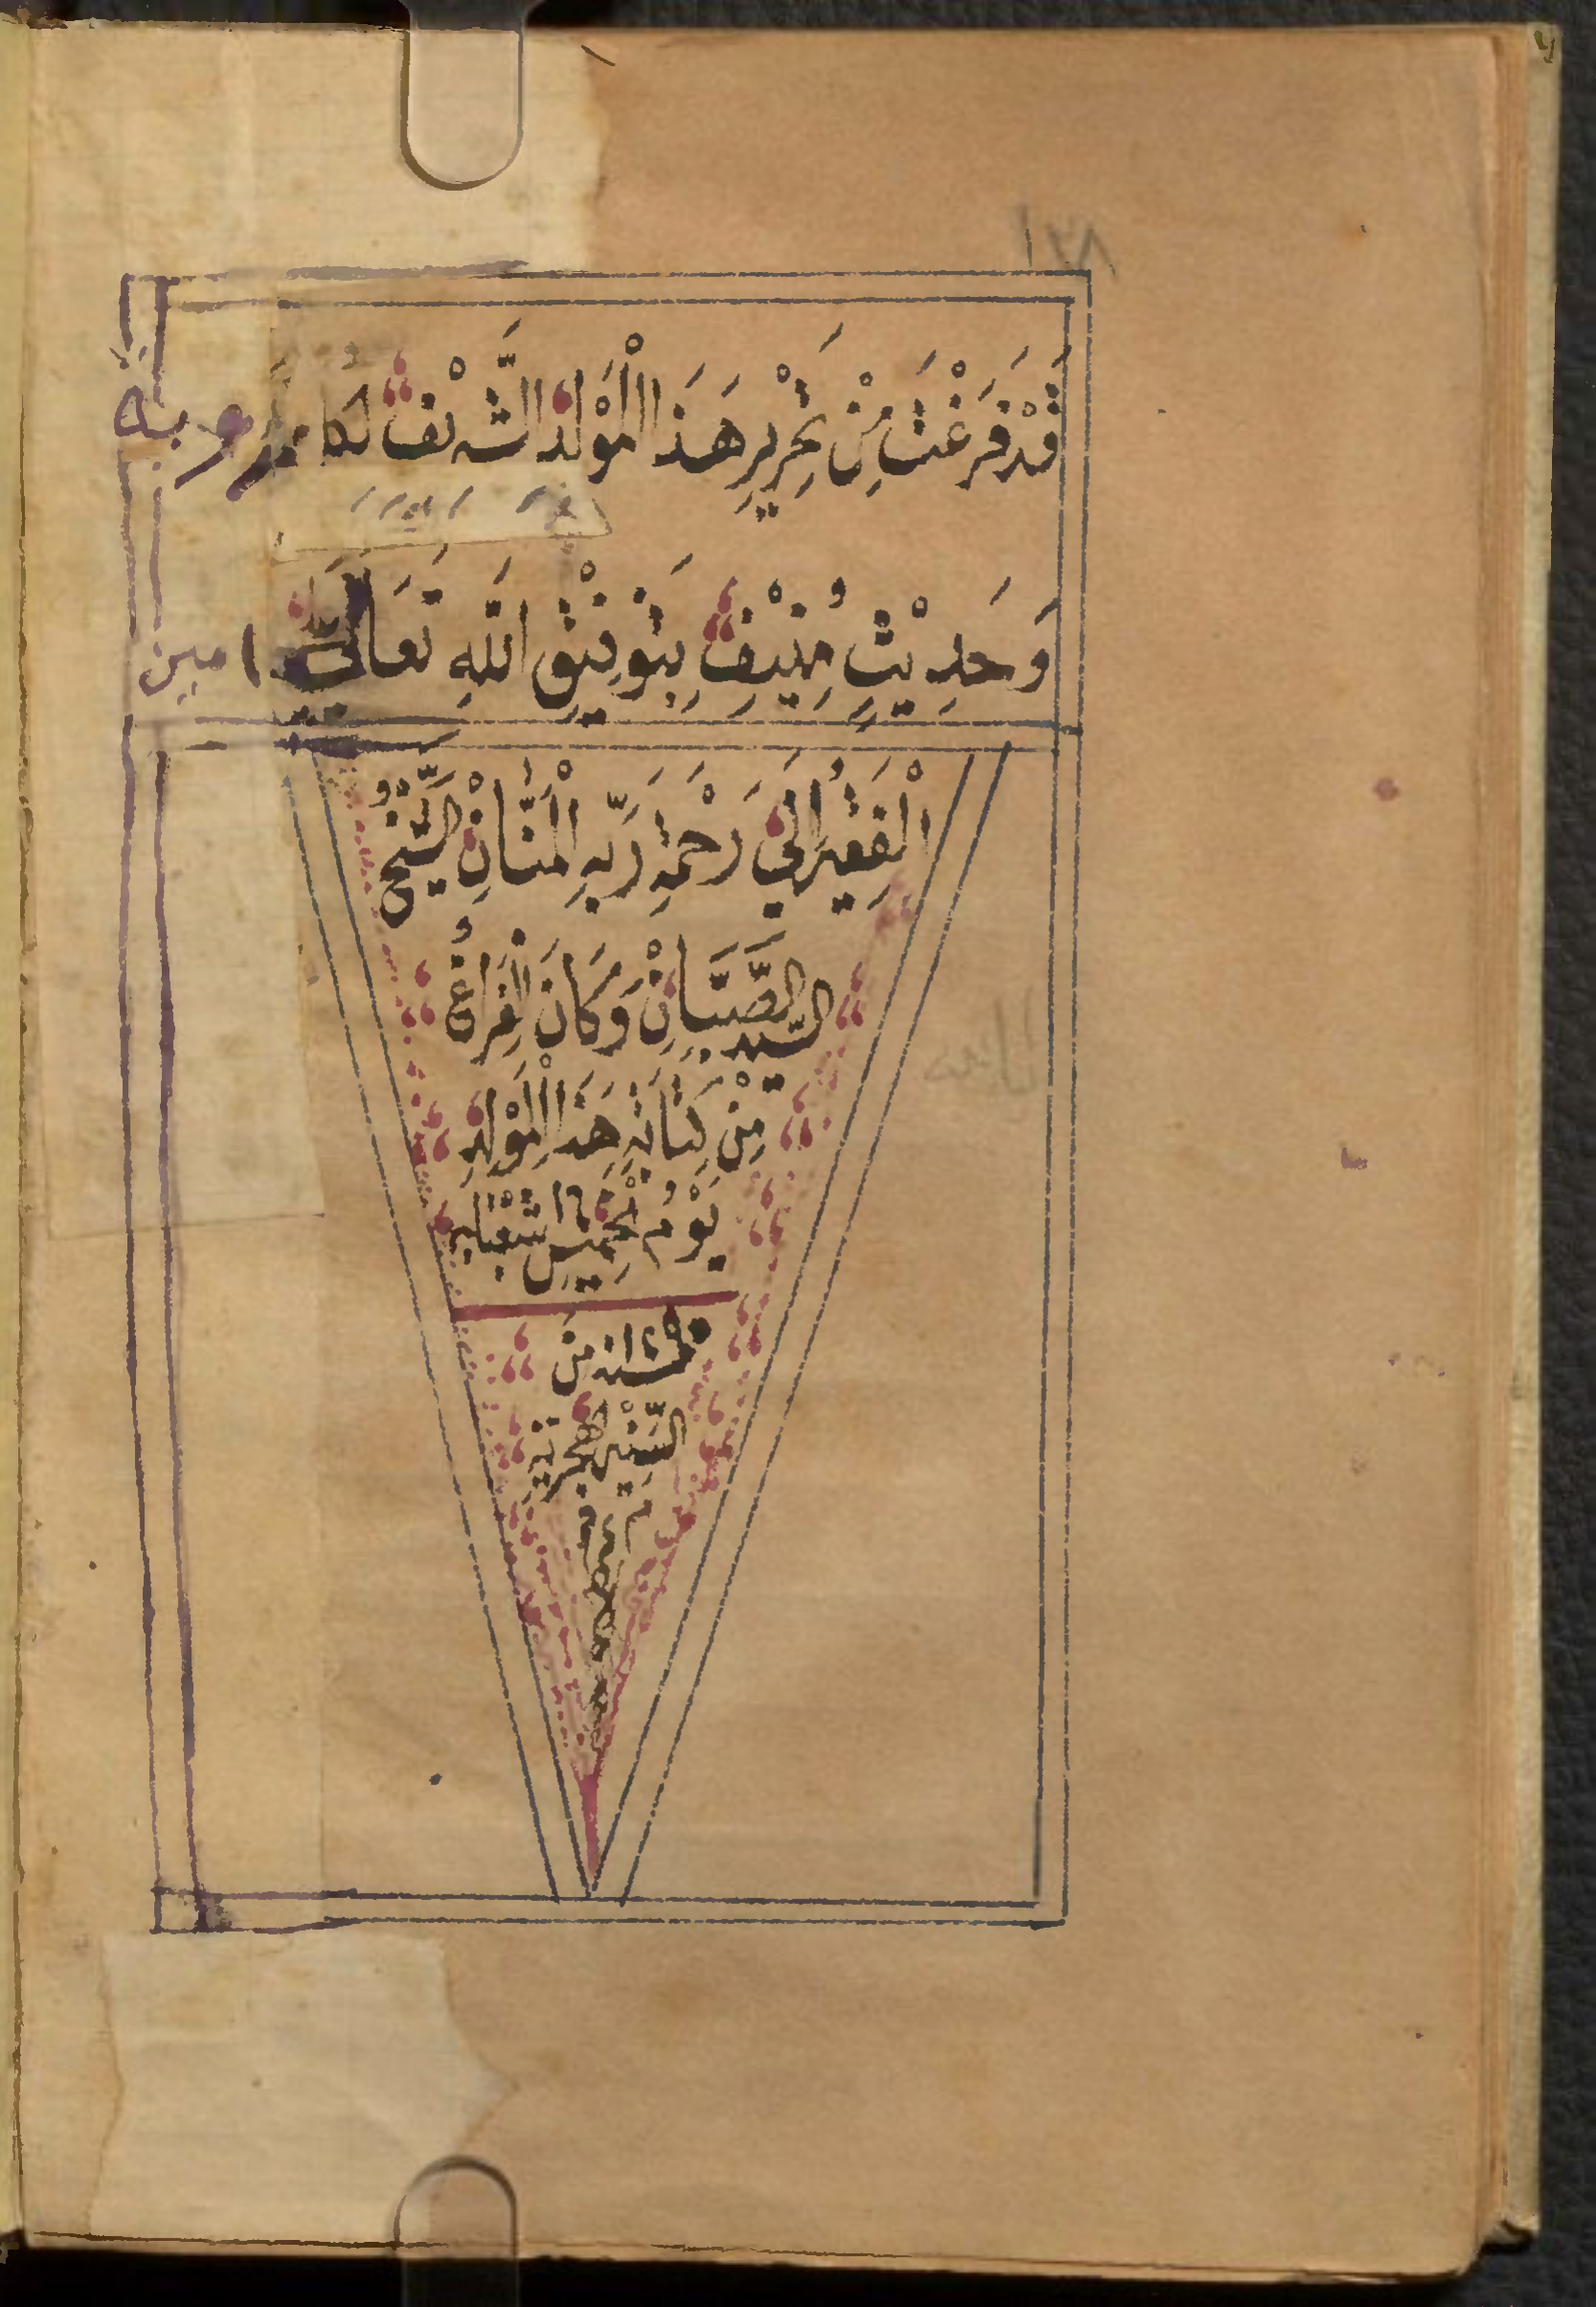 قَدْ فَرَغْتُ مِنْ تَحْرِيْرِ هَذَا الْمَوْلِدْ الشَّرِيْفْ
وَحَدِيْثٍ مُنِيْفْ بِتَوْفِيْقِ اللَّهِ تَعَالَى امين
الْفَقِيْرُ إِلَى رَحْمَةِ رَبِّهِ الْمَنَّانِ الشَّيْخُ
السَّيِّد الصَّبَّانْ وَكَانَ الْفَرَاغُ
مِنْ كِتَابَةِ هَذَا الْمَوْلِدِ
يَوْمُ الْخَمِيْسِ شَعْبَان
مِنَ
السِّنِيْنِ الْهِجْرِيَّةِ
م